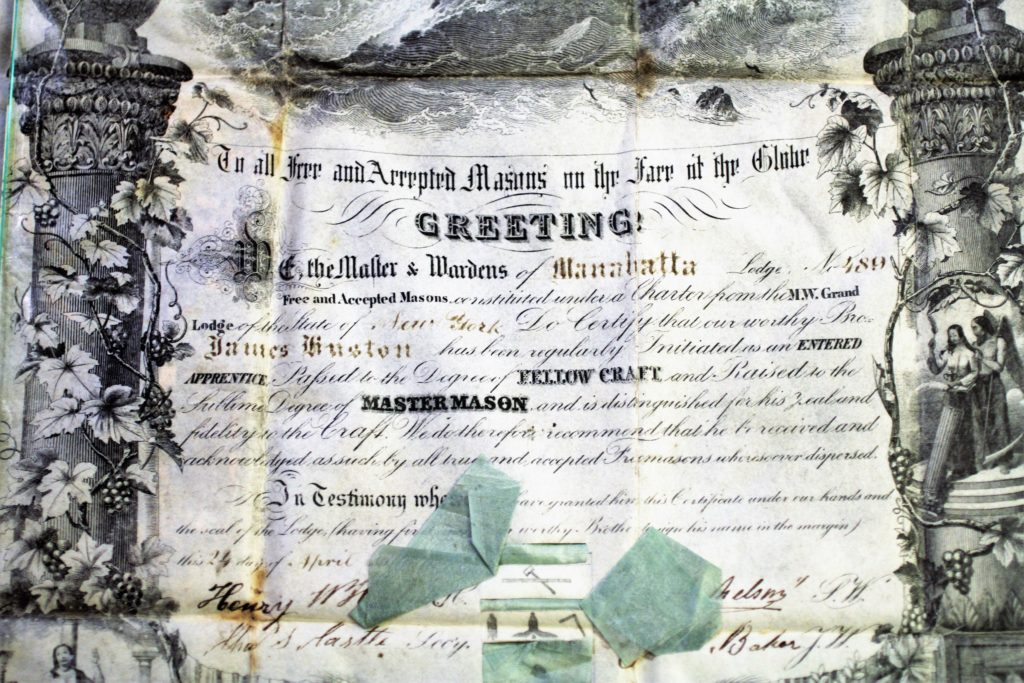 To all Free and Accepted Masons on the Face of the Globe
GREETING!
WE, the Master & Wardens of Manahatta Lodge, No 489
Free and Accepted Masons, constituted under a Charter from the M.W. Grand
Lodge of the State of New York Do Certify that our worthy Bro.
James Huston has been regularly Initiated as an ENTERED
APPRENTICE, Passed to the Degree of FELLOW CRAFT, and Raised to the
Sublime Degree of MASTER MASON, and is distinguished for his Zeal and
fidelity to the Craft. We do therefore recommend that he be received and
acknowledged as such by all true and accepted Freemasons wheresoever dispersed.
In Testimony have granted him this Certificate under our hands and
the seal of the Lodge, (having worthy Brother to sign his name in the margin)
this day of April
Henry
S.W.
Secy.
Baker J.W.